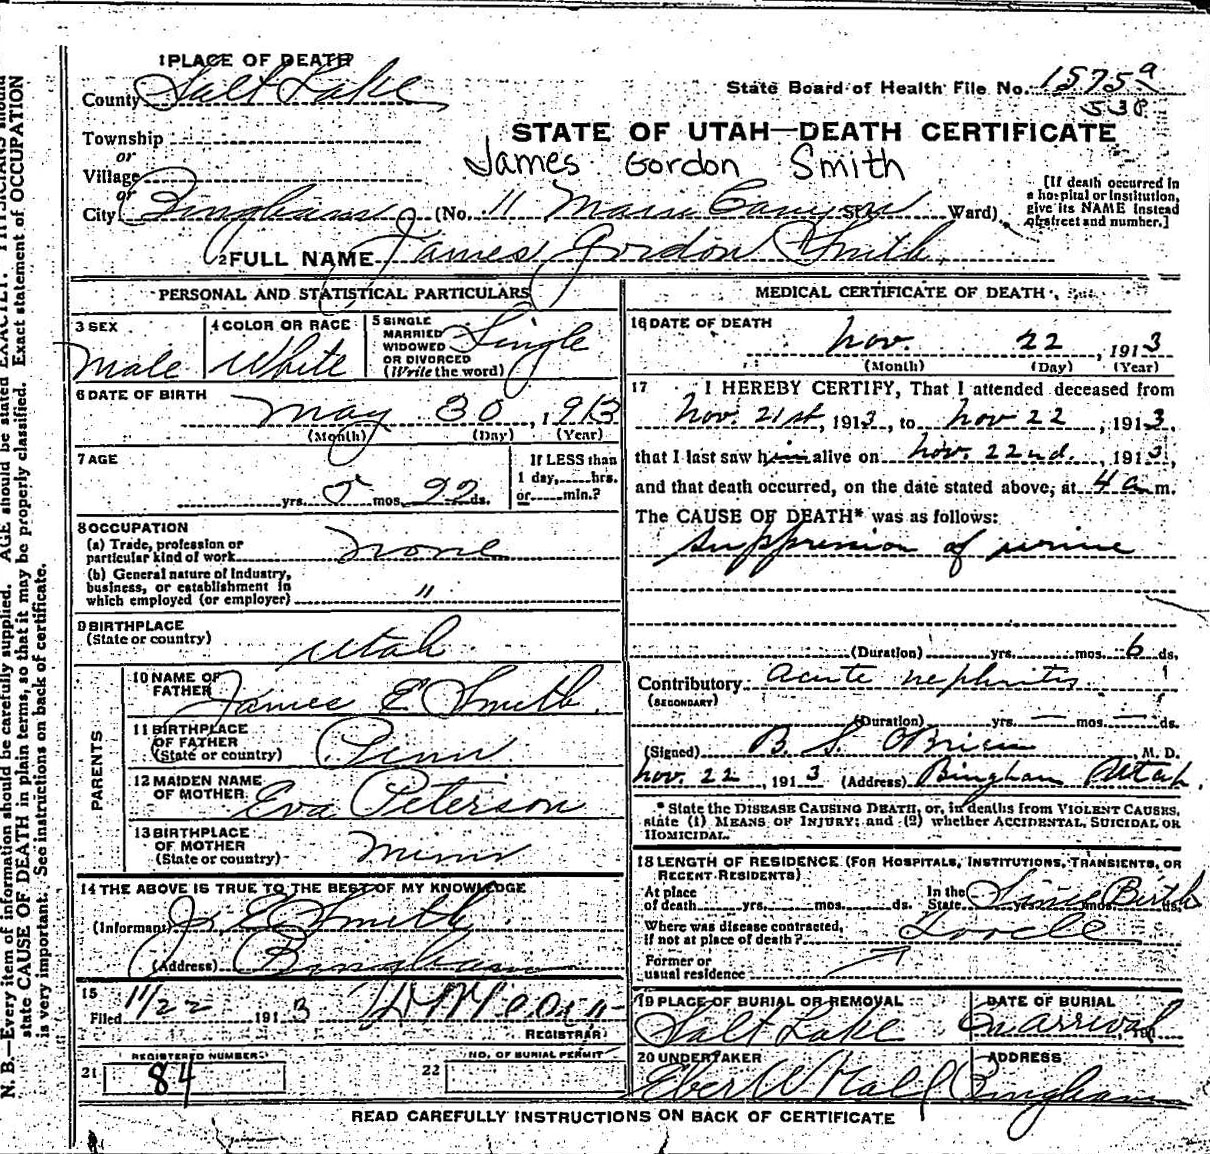 1 PLACE OF DEATH
County Salt Lake
State Board of Health File No. 1575a
538
Township
or
Village
or
City Bingham (No. 11 Main Canyon St. Ward)
STATE OF UTAH—DEATH CERTIFICATE
James Gordon Smith
[If death occurred in a hospital or institution, give its NAME instead of street and number.]
2 FULL NAME James Gordon Smith
PERSONAL AND STATISTICAL PARTICULARS
3 SEX
Male
4 COLOR OR RACE
White
5 SINGLE
MARRIED
WIDOWED
OR DIVORCED
(Write the word)
Single
6 DATE OF BIRTH
May 30, 1913
(Month) (Day) (Year)
7 AGE
yrs. 5 mos. 22 ds.
If LESS than
1 day, hrs.
or min.?
8 OCCUPATION
(a) Trade, profession or
particular kind of work None
(b) General nature of industry,
business, or establishment in
which employed (or employer) "
9 BIRTHPLACE
(State or country) Utah
PARENTS
10 NAME OF
FATHER James E Smith.
11 BIRTHPLACE
OF FATHER
(State or country) Penn
12 MAIDEN NAME
OF MOTHER Eva Peterson
13 BIRTHPLACE
OF MOTHER
(State or country) Minn
14 THE ABOVE IS TRUE TO THE BEST OF MY KNOWLEDGE
(Informant) J. E Smith
(Address) Bingham
15
Filed 11/22 1913
REGISTRAR
REGISTERED NUMBER
21 84
NO. OF BURIAL PERMIT
22
MEDICAL CERTIFICATE OF DEATH
16 DATE OF DEATH
Nov. 22, 1913
(Month) (Day) (Year)
17 I HEREBY CERTIFY, That I attended deceased from
Nov. 21st, 1913, to Nov 22, 1913,
that I last saw him alive on Nov. 22nd., 1913,
and that death occurred, on the date stated above, at 4 a m.
The CAUSE OF DEATH* was as follows:
Suppression of urine
(Duration) yrs. mos. 6 ds.
Contributory Acute nephritis
(SECONDARY)
(Duration) yrs. — mos. — ds.
(Signed) B. S. OBrien M. D.
Nov. 22, 1913 (Address) Bingham Utah.
* State the DISEASE CAUSING DEATH, or, in deaths from VIOLENT CAUSES,
state (1) MEANS OF INJURY; and (2) whether ACCIDENTAL, SUICIDAL OR
HOMICIDAL.
18 LENGTH OF RESIDENCE (FOR HOSPITALS, INSTITUTIONS, TRANSIENTS, OR
RECENT RESIDENTS)
At place
of death yrs. mos. ds.
In the
State yrs. mos. ds. Since Birth
Where was disease contracted,
if not at place of death?
Former or
usual residence
19 PLACE OF BURIAL OR REMOVAL
Salt Lake
DATE OF BURIAL
On arrival 191
20 UNDERTAKER
Eber W Hall
ADDRESS
Bingham
READ CAREFULLY INSTRUCTIONS ON BACK OF CERTIFICATE
N. B.—Every item of information should be carefully supplied. AGE should be stated EXACTLY. PHYSICIANS should
state CAUSE OF DEATH in plain terms, so that it may be properly classified. Exact statement of OCCUPATION
is very important. See instructions on back of certificate.